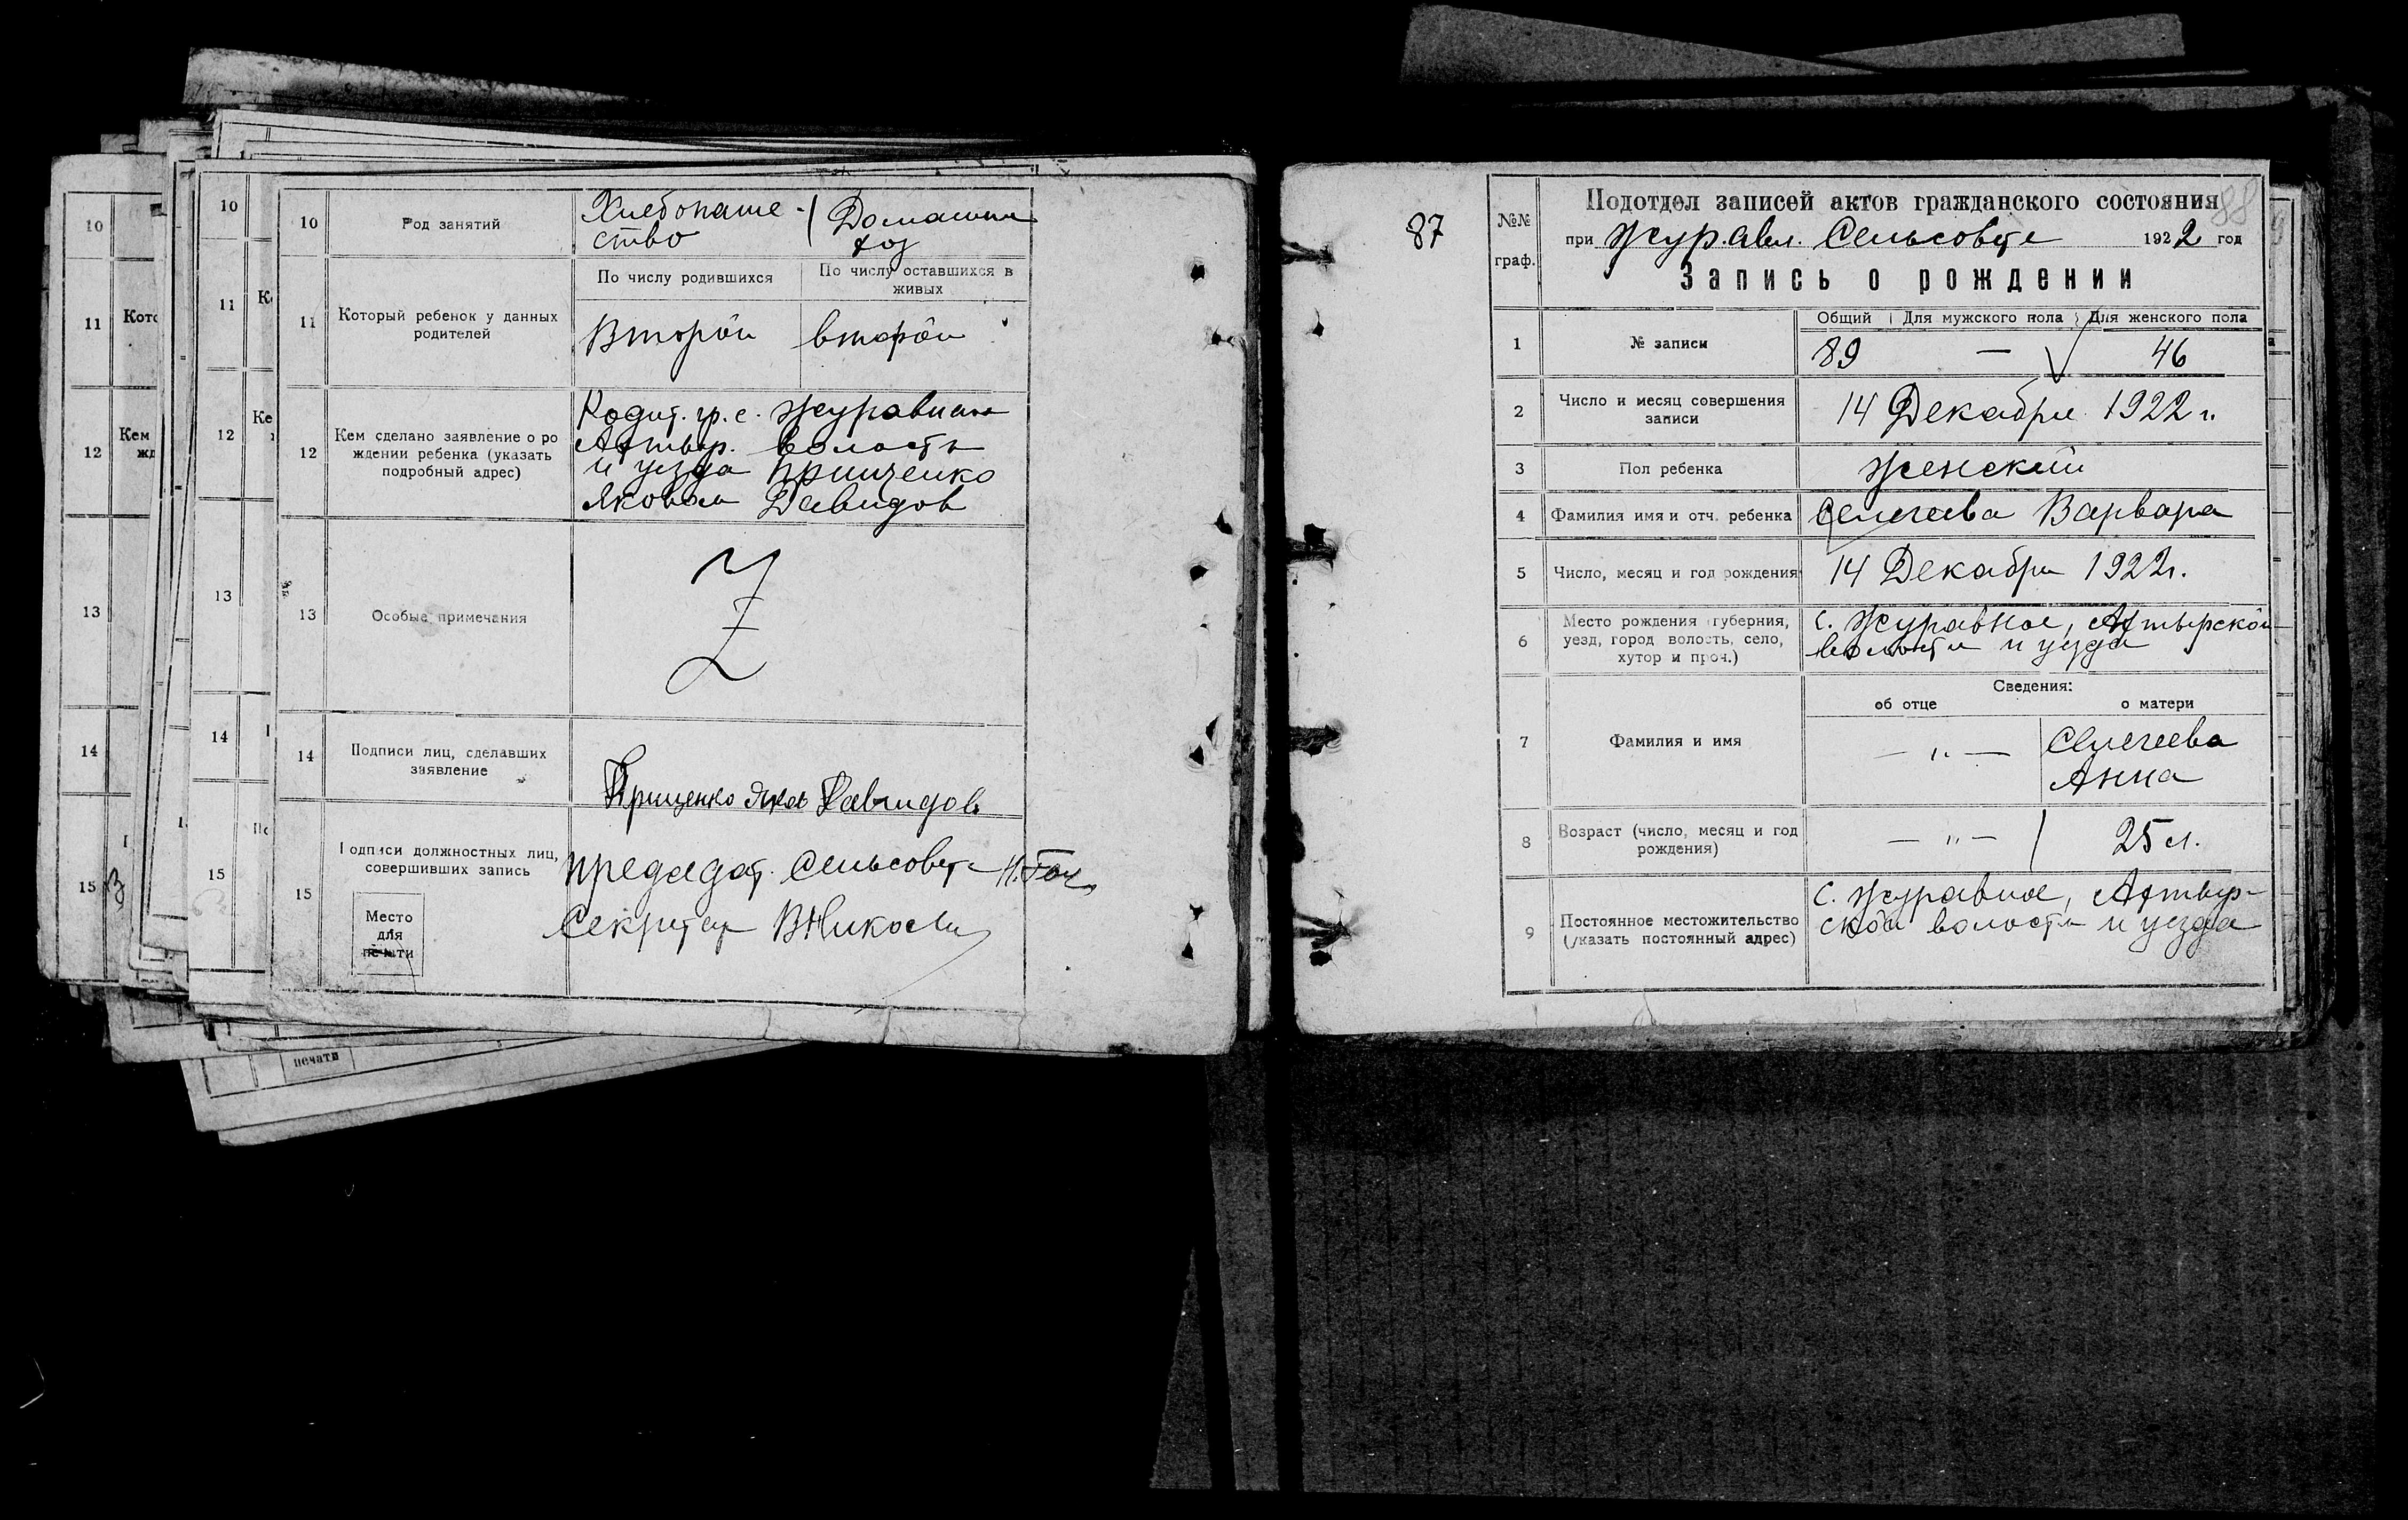 10
Род занятий
Хлебопаше-
ство
Домашн
хоз
11
Который ребенок у данных
родителей
По числу родившихся
По числу оставшихся в
живых
Второй
второй
12
Кем сделано заявление о ро
ждении ребенка (указать
подробный адрес)
Родит. гр. с. Журавлан
Ахтыр. волости
и уезда Прищенко
Яковом Давидов
13
Особые примечания
Z
14
Подписи лиц, сделавших
заявление
Прищенко Яков Давидов
15
Подписи должностных лиц,
совершивших запись
Место
для
печати
Председат. Сельсовета
Секретар
10
11
12
13
14
15
10
11
12
13
14
15
печати
87
88
№№
граф.
Подотдел записей актов гражданского состояния
при Журавл. Сельсовете 1922 год
Запись о рождении
1
№ записи
Общий
Для мужского пола
Для женского пола
89 — 46
2
Число и месяц совершения
записи
14 Декабря 1922 г.
3
Пол ребенка
Женский
4
Фамилия имя и отч. ребенка
Селегеева Варвара
5
Число, месяц и год рождения
14 Декабря 1922 г.
6
Место рождения (губерния,
уезд, город волость, село,
хутор и проч.)
с. Журавное, Ахтырской
волости и уезда
7
Фамилия и имя
Сведения:
об отце
о матери
— " —
Селегеева
Анна
8
Возраст (число, месяц и год
рождения)
— " —
25 л.
9
Постоянное местожительство
(указать постоянный адрес)
с. Журавное, Ахтыр-
ской волости и уезда